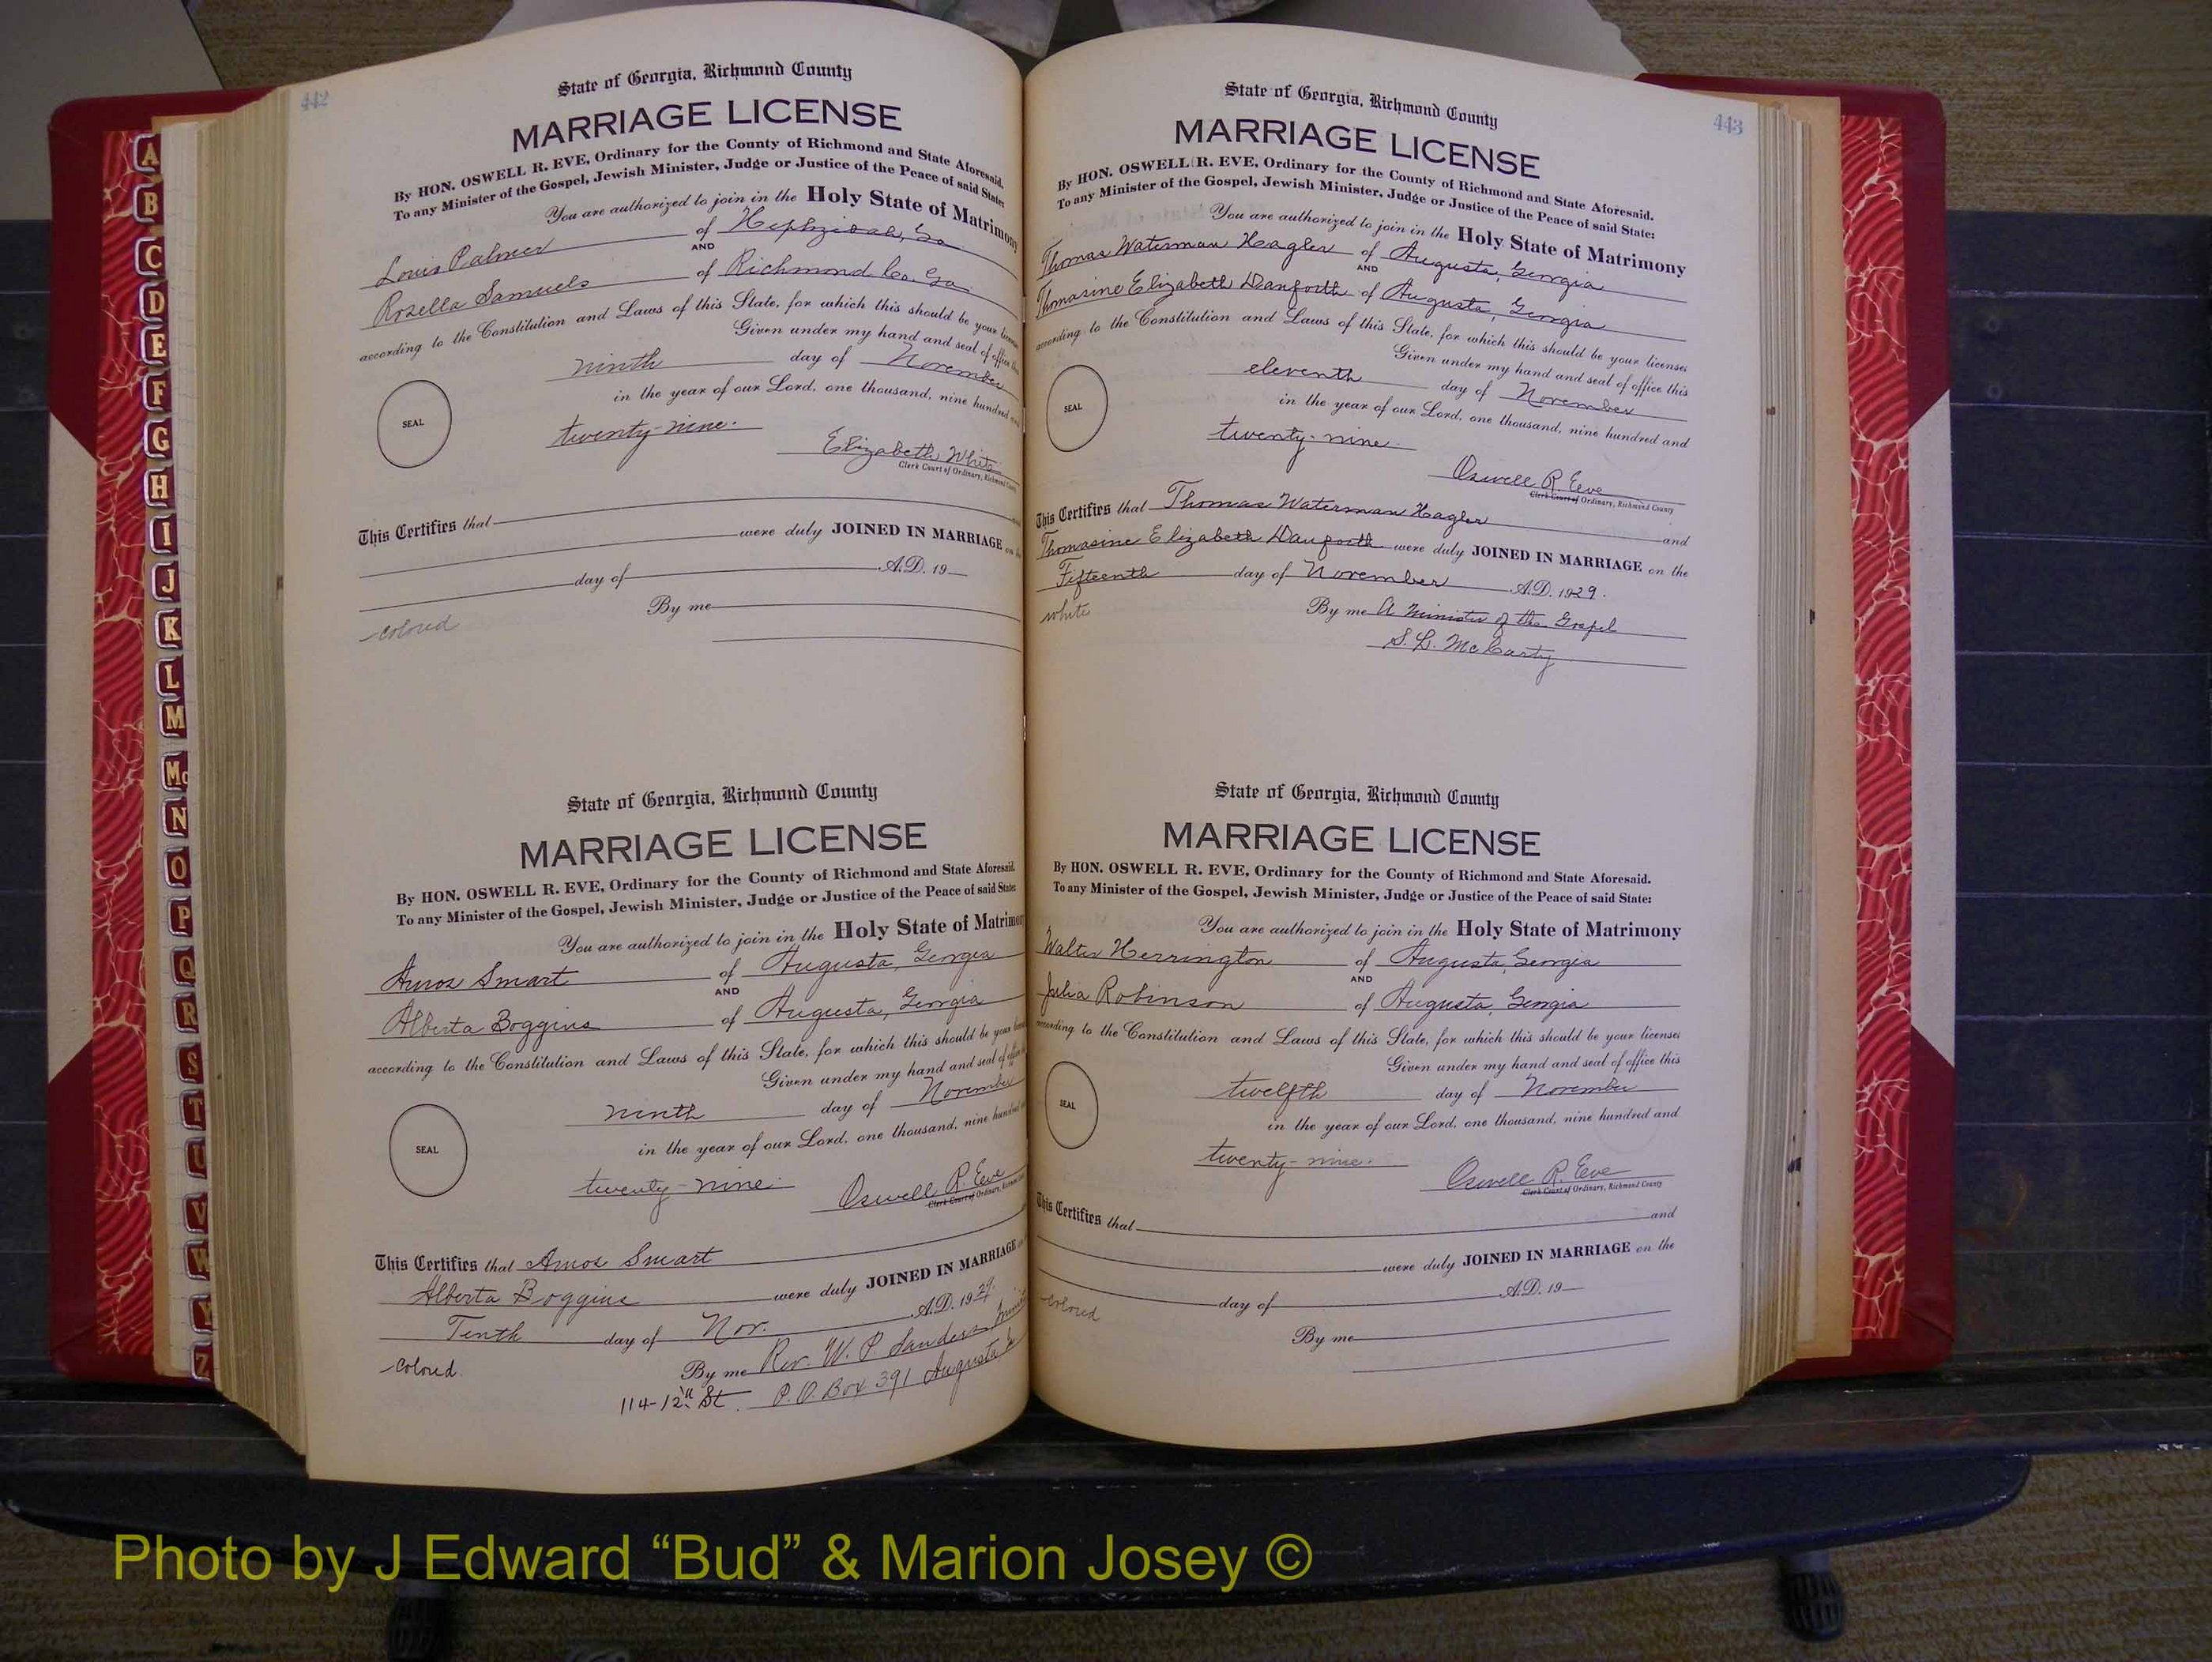 A
B
C
D
E
F
G
H
I
J
K
L
M
Mc
N
O
P
Q
R
S
T
U
V
W
Y
Z
442
State of Georgia, Richmond County
MARRIAGE LICENSE
By HON. OSWELL R. EVE, Ordinary for the County of Richmond and State Aforesaid.
To any Minister of the Gospel, Jewish Minister, Judge or Justice of the Peace of said State:
You are authorized to join in the Holy State of Matrimony
Louis Palmer of Hephzibah, Ga
AND
Rozella Samuels of Richmond Co. Ga.
according to the Constitution and Laws of this State, for which this should be your
Given under my hand and seal of office
ninth day of November
in the year of our Lord, one thousand, nine hundred
SEAL
twenty-nine.
Elizabeth White
Clerk Court of Ordinary, Richmond County
This Certifies that
were duly JOINED IN MARRIAGE
day of A.D. 19
By me
colored
State of Georgia, Richmond County
MARRIAGE LICENSE
By HON. OSWELL R. EVE, Ordinary for the County of Richmond and State Aforesaid.
To any Minister of the Gospel, Jewish Minister, Judge or Justice of the Peace of said State:
You are authorized to join in the Holy State of Matrimony
Amos Smart of Augusta, Georgia
AND
Alberta Boggins of Augusta, Georgia
according to the Constitution and Laws of this State, for which this should be your
Given under my hand and seal of office
ninth day of November
in the year of our Lord, one thousand, nine hundred
SEAL
twenty-nine.
Oswell R. Eve
Clerk Court of Ordinary,
This Certifies that Amos Smart
Alberta Boggins were duly JOINED IN MARRIAGE
Tenth day of Nov. A.D. 1929
colored. By me Rev. W. P. Sanders
114-12th St. P.O. Box 391 Augusta
443
State of Georgia, Richmond County
MARRIAGE LICENSE
By HON. OSWELL R. EVE, Ordinary for the County of Richmond and State Aforesaid.
To any Minister of the Gospel, Jewish Minister, Judge or Justice of the Peace of said State:
You are authorized to join in the Holy State of Matrimony
Thomas Waterman Hagler of Augusta, Georgia
AND
Thomasine Elizabeth Danforth of Augusta, Georgia
according to the Constitution and Laws of this State, for which this should be your licenses
Given under my hand and seal of office this
eleventh day of November
in the year of our Lord, one thousand, nine hundred and
SEAL
twenty-nine
Oswell R. Eve
Clerk Court of Ordinary, Richmond County
This Certifies that Thomas Waterman Hagler and
Thomasine Elizabeth Danforth were duly JOINED IN MARRIAGE on the
Fifteenth day of November A.D. 1929.
white By me A Minister of the Gospel
S. L. McCarty
State of Georgia, Richmond County
MARRIAGE LICENSE
By HON. OSWELL R. EVE, Ordinary for the County of Richmond and State Aforesaid.
To any Minister of the Gospel, Jewish Minister, Judge or Justice of the Peace of said State:
You are authorized to join in the Holy State of Matrimony
Walter Herrington of Augusta, Georgia
AND
Julia Robinson of Augusta, Georgia
according to the Constitution and Laws of this State, for which this should be your licenses
Given under my hand and seal of office this
twelfth day of November
in the year of our Lord, one thousand, nine hundred and
SEAL
twenty-nine.
Oswell R. Eve
Clerk Court of Ordinary, Richmond County
This Certifies that and
were duly JOINED IN MARRIAGE on the
colored day of A.D. 19
By me
Photo by J Edward “Bud” & Marion Josey ©